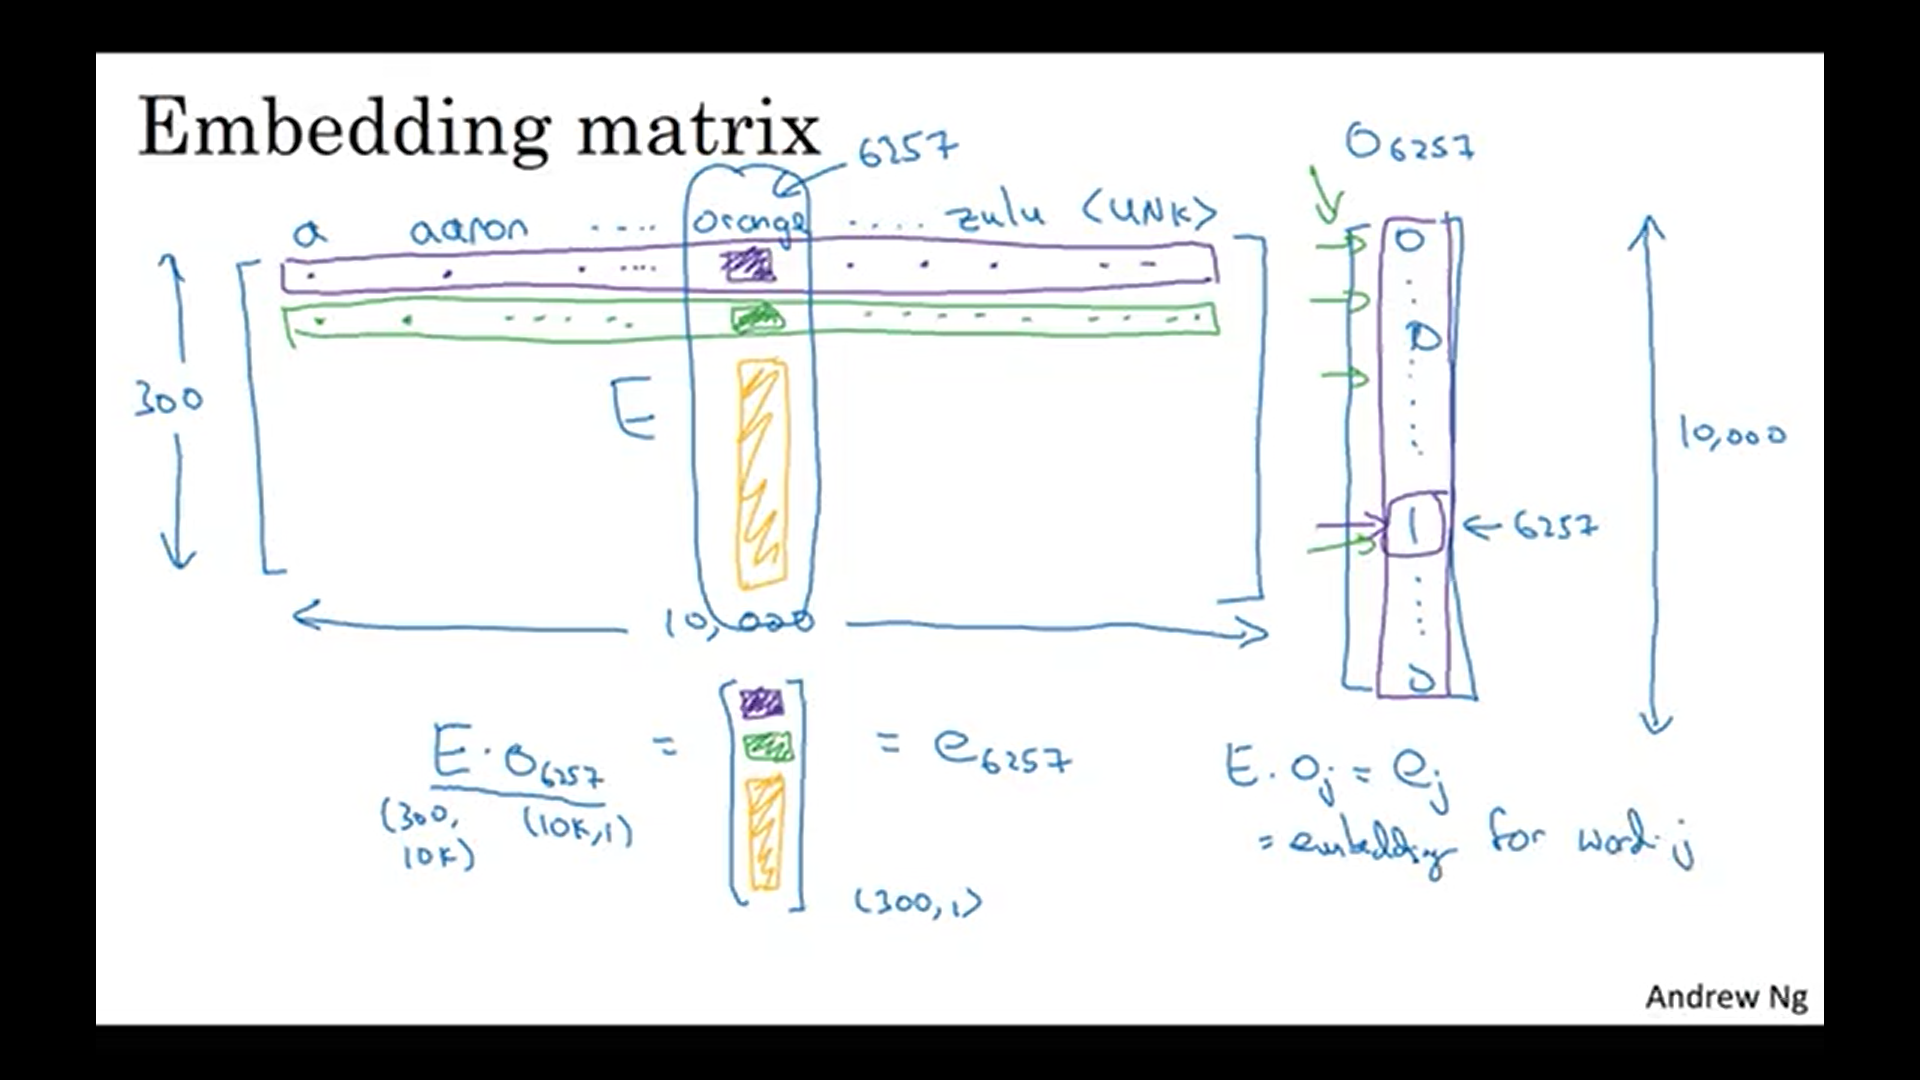 Embedding matrix
6257
O6257
a aaron .... orange .... zulu <UNK>
0
0
300
E
10,000
1 ← 6257
10,000
0
E · O6257 = = e6257
(300, 10K) (10K,1)
(300,1)
E . Oj = ej
= embedding for word j
Andrew Ng